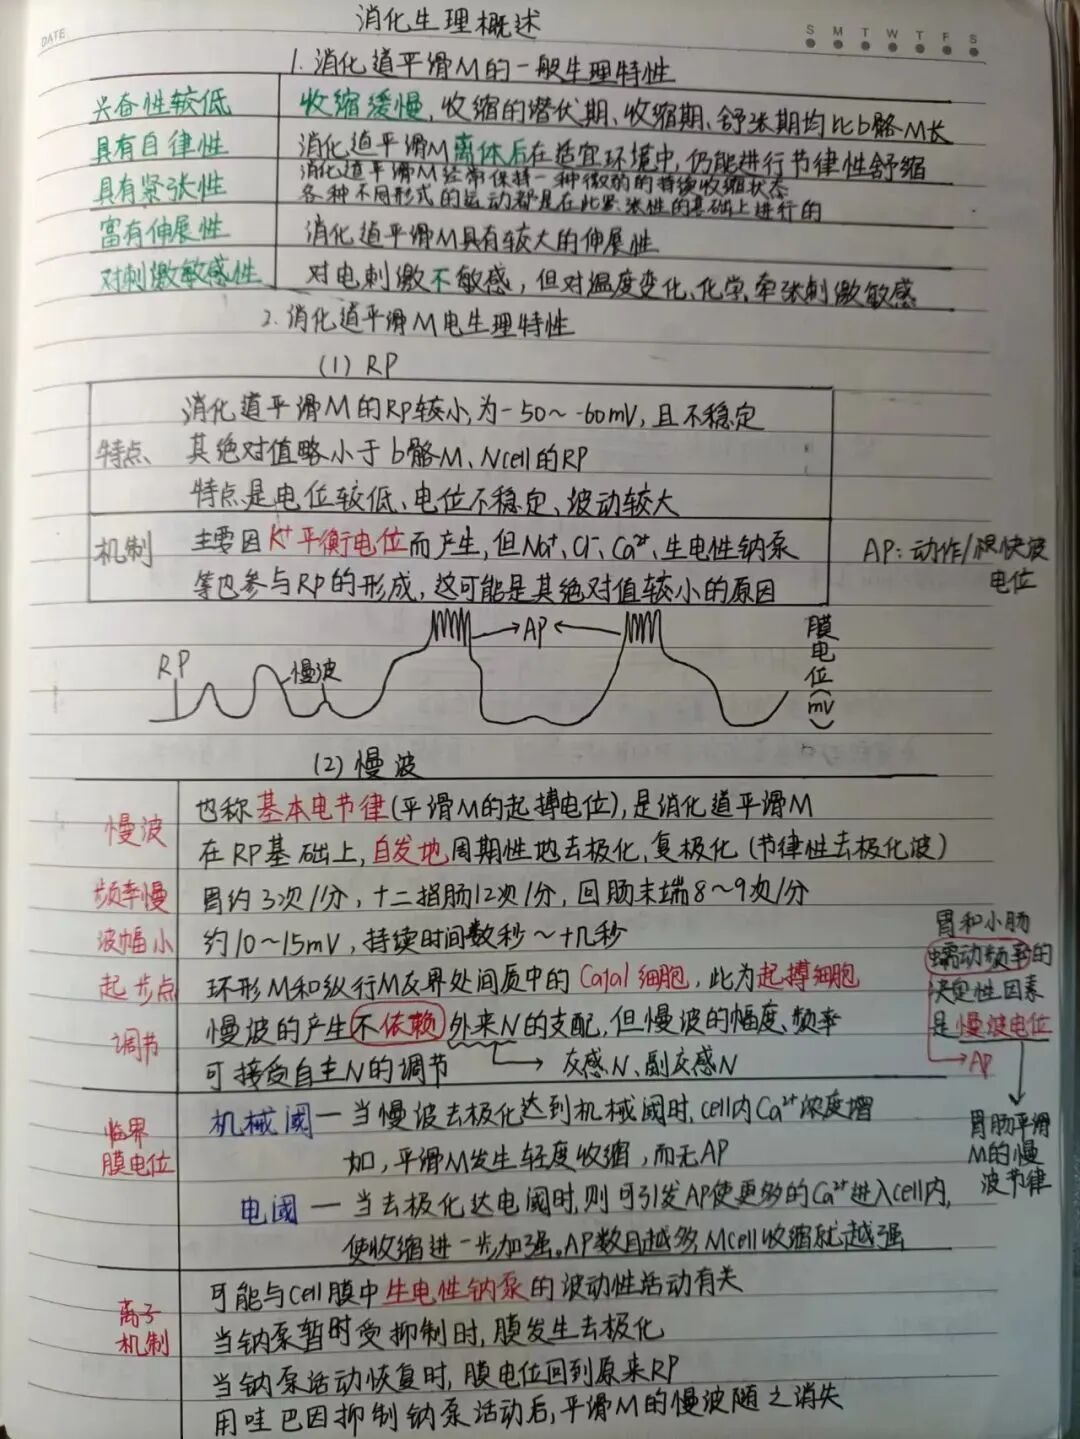 消化生理概述
DATE
S M T W T F S
1. 消化道平滑M的一般生理特性
兴奋性较低 收缩缓慢, 收缩的潜伏期、收缩期、舒张期均比b骼M长
具有自律性 消化道平滑M离体后在适宜环境中, 仍能进行节律性舒缩
具有紧张性 消化道平滑M经常保持一种微弱的持续收缩状态
各种不同形式的运动都是在此紧张性的基础上进行的
富有伸展性 消化道平滑M具有较大的伸展性
对刺激敏感性 对电刺激不敏感, 但对温度变化、化学、牵张刺激敏感
2. 消化道平滑M电生理特性
(1) RP
消化道平滑M的RP较小,为-50～-60mV, 且不稳定
特点、 其绝对值略小于b骼M、Ncell的RP
特点是电位较低、电位不稳定、波动较大
机制 主要因K⁺平衡电位而产生, 但Na⁺、Cl⁻、Ca²⁺、生电性钠泵
等也参与RP的形成, 这可能是其绝对值较小的原因
AP: 动作/快波
电位
RP
慢波
AP
膜电位(mV)
(2) 慢波
慢波 也称基本电节律(平滑M的起搏电位), 是消化道平滑M
在RP基础上, 自发地周期性地去极化、复极化 (节律性去极化波)
频率慢 胃约3次/分, 十二指肠12次/分, 回肠末端8～9次/分
波幅小 约10～15mV, 持续时间数秒～十几秒
起步点 环形M和纵行M交界处间质中的Cajal细胞, 此为起搏细胞
调节 慢波的产生不依赖外来N的支配, 但慢波的幅度、频率
可接受自主N的调节 → 交感N、副交感N
胃和小肠
蠕动频率的
决定性因素
是慢波电位
→AP
胃肠平滑
M的慢
波节律
临界
膜电位
机械阈 — 当慢波去极化达到机械阈时, cell内Ca²⁺浓度增
加, 平滑M发生轻度收缩, 而无AP
电阈 — 当去极化达电阈时, 则可引发AP使更多的Ca²⁺进入cell内,
使收缩进一步加强。AP数目越多, Mcell收缩就越强
离子
机制
可能与cell膜中生电性钠泵的波动性活动有关
当钠泵暂时受抑制时, 膜发生去极化
当钠泵活动恢复时, 膜电位回到原来RP
用哇巴因抑制钠泵活动后, 平滑M的慢波随之消失